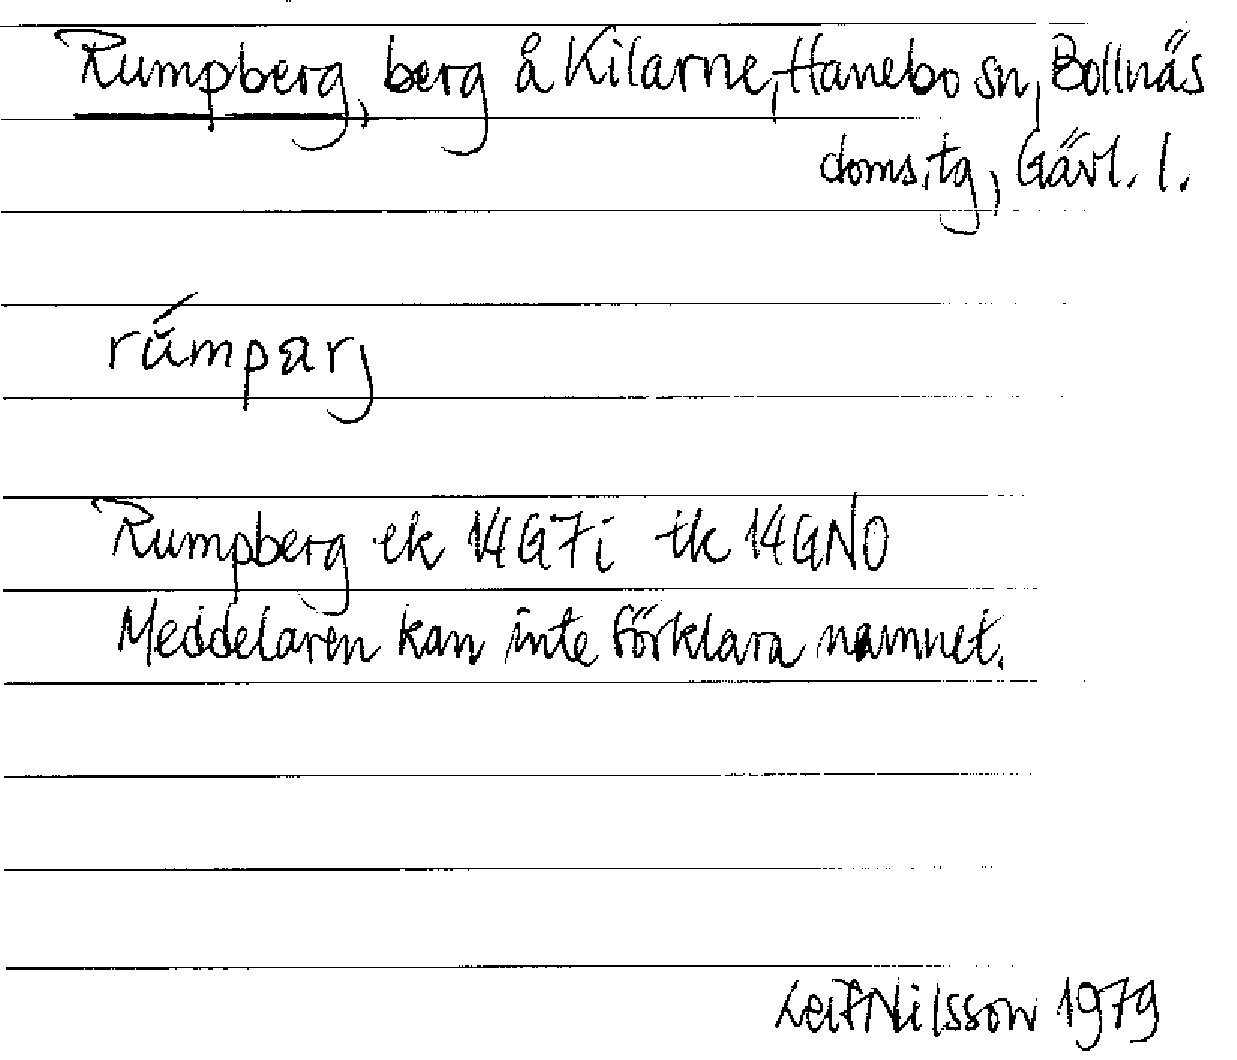 Rumpberg, berg å Kilarne, Hanebo sn, Bollnäs
doms.tg, Gävl. l.
rúmpærj
Rumpberg ek 14G7i tk 14GNO
Meddelaren kan inte förklara namnet.
Leif Nilsson 1979